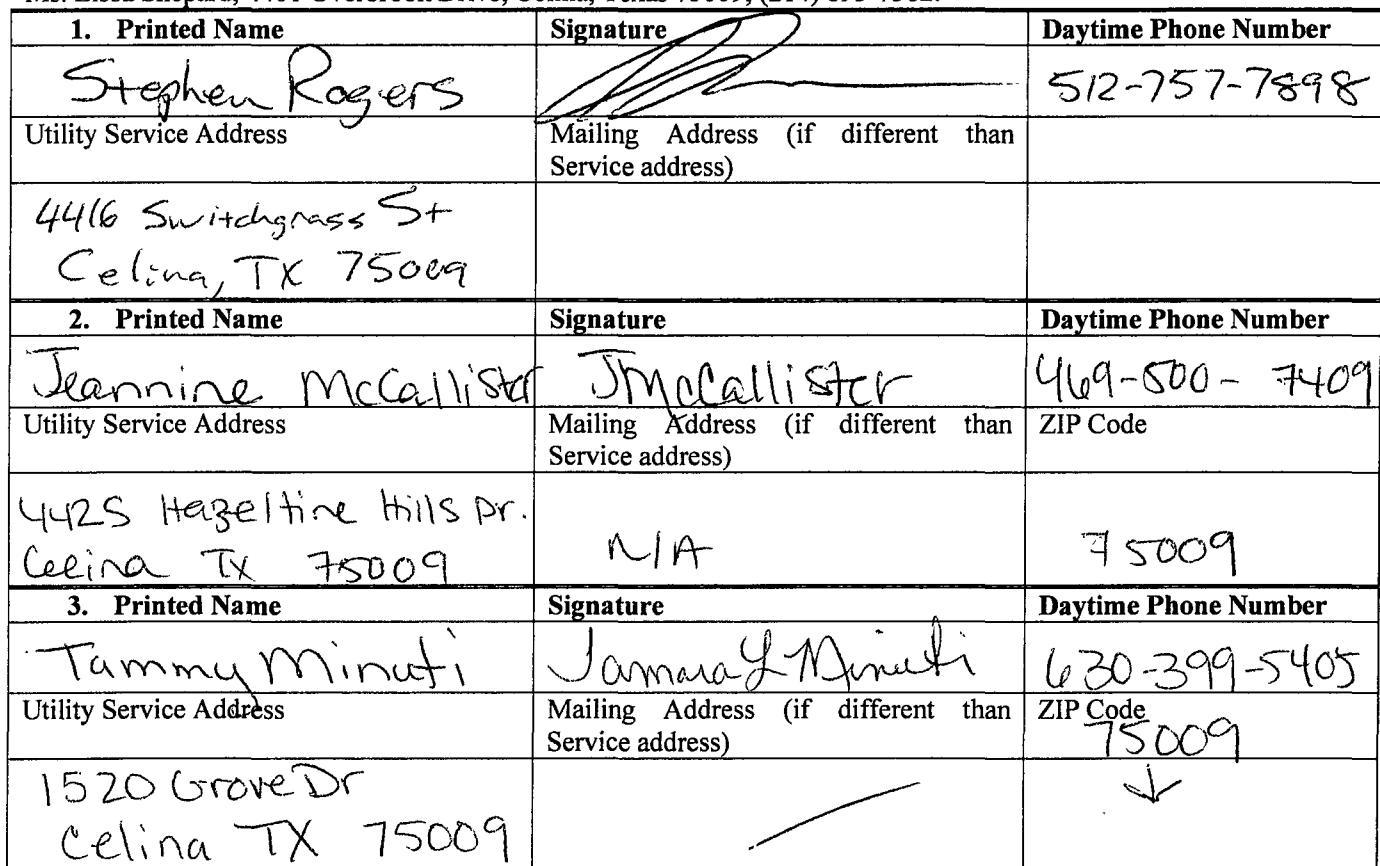 1. Printed Name Signature Daytime Phone Number
Stephen Rogers 512-757-7898
Utility Service Address Mailing Address (if different than
Service address)
4416 Switchgrass St
Celina, TX 75009
2. Printed Name Signature Daytime Phone Number
Jeannine McCallister JMcCallister 469-500-7409
Utility Service Address Mailing Address (if different than ZIP Code
Service address)
4425 Hazeltine Hills Dr.
Celina TX 75009 N/A 75009
3. Printed Name Signature Daytime Phone Number
Tammy Minuti Tamara L Minuti 630-399-5405
Utility Service Address Mailing Address (if different than ZIP Code
Service address) 75009
1520 Grove Dr
Celina TX 75009